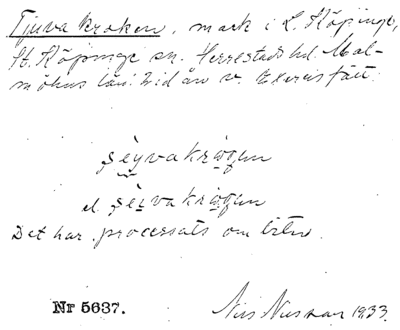 Tjuva kroken, mark i L. Köpinge,
St. Köpinge sn. Herrestads hd. Mal-
möhus län. Vid ån v. Exercisfält.
şèyvakrωqen
el. şèivakrωqen
Det har processats om
Nr 5637. Nils Nilsson 1933.